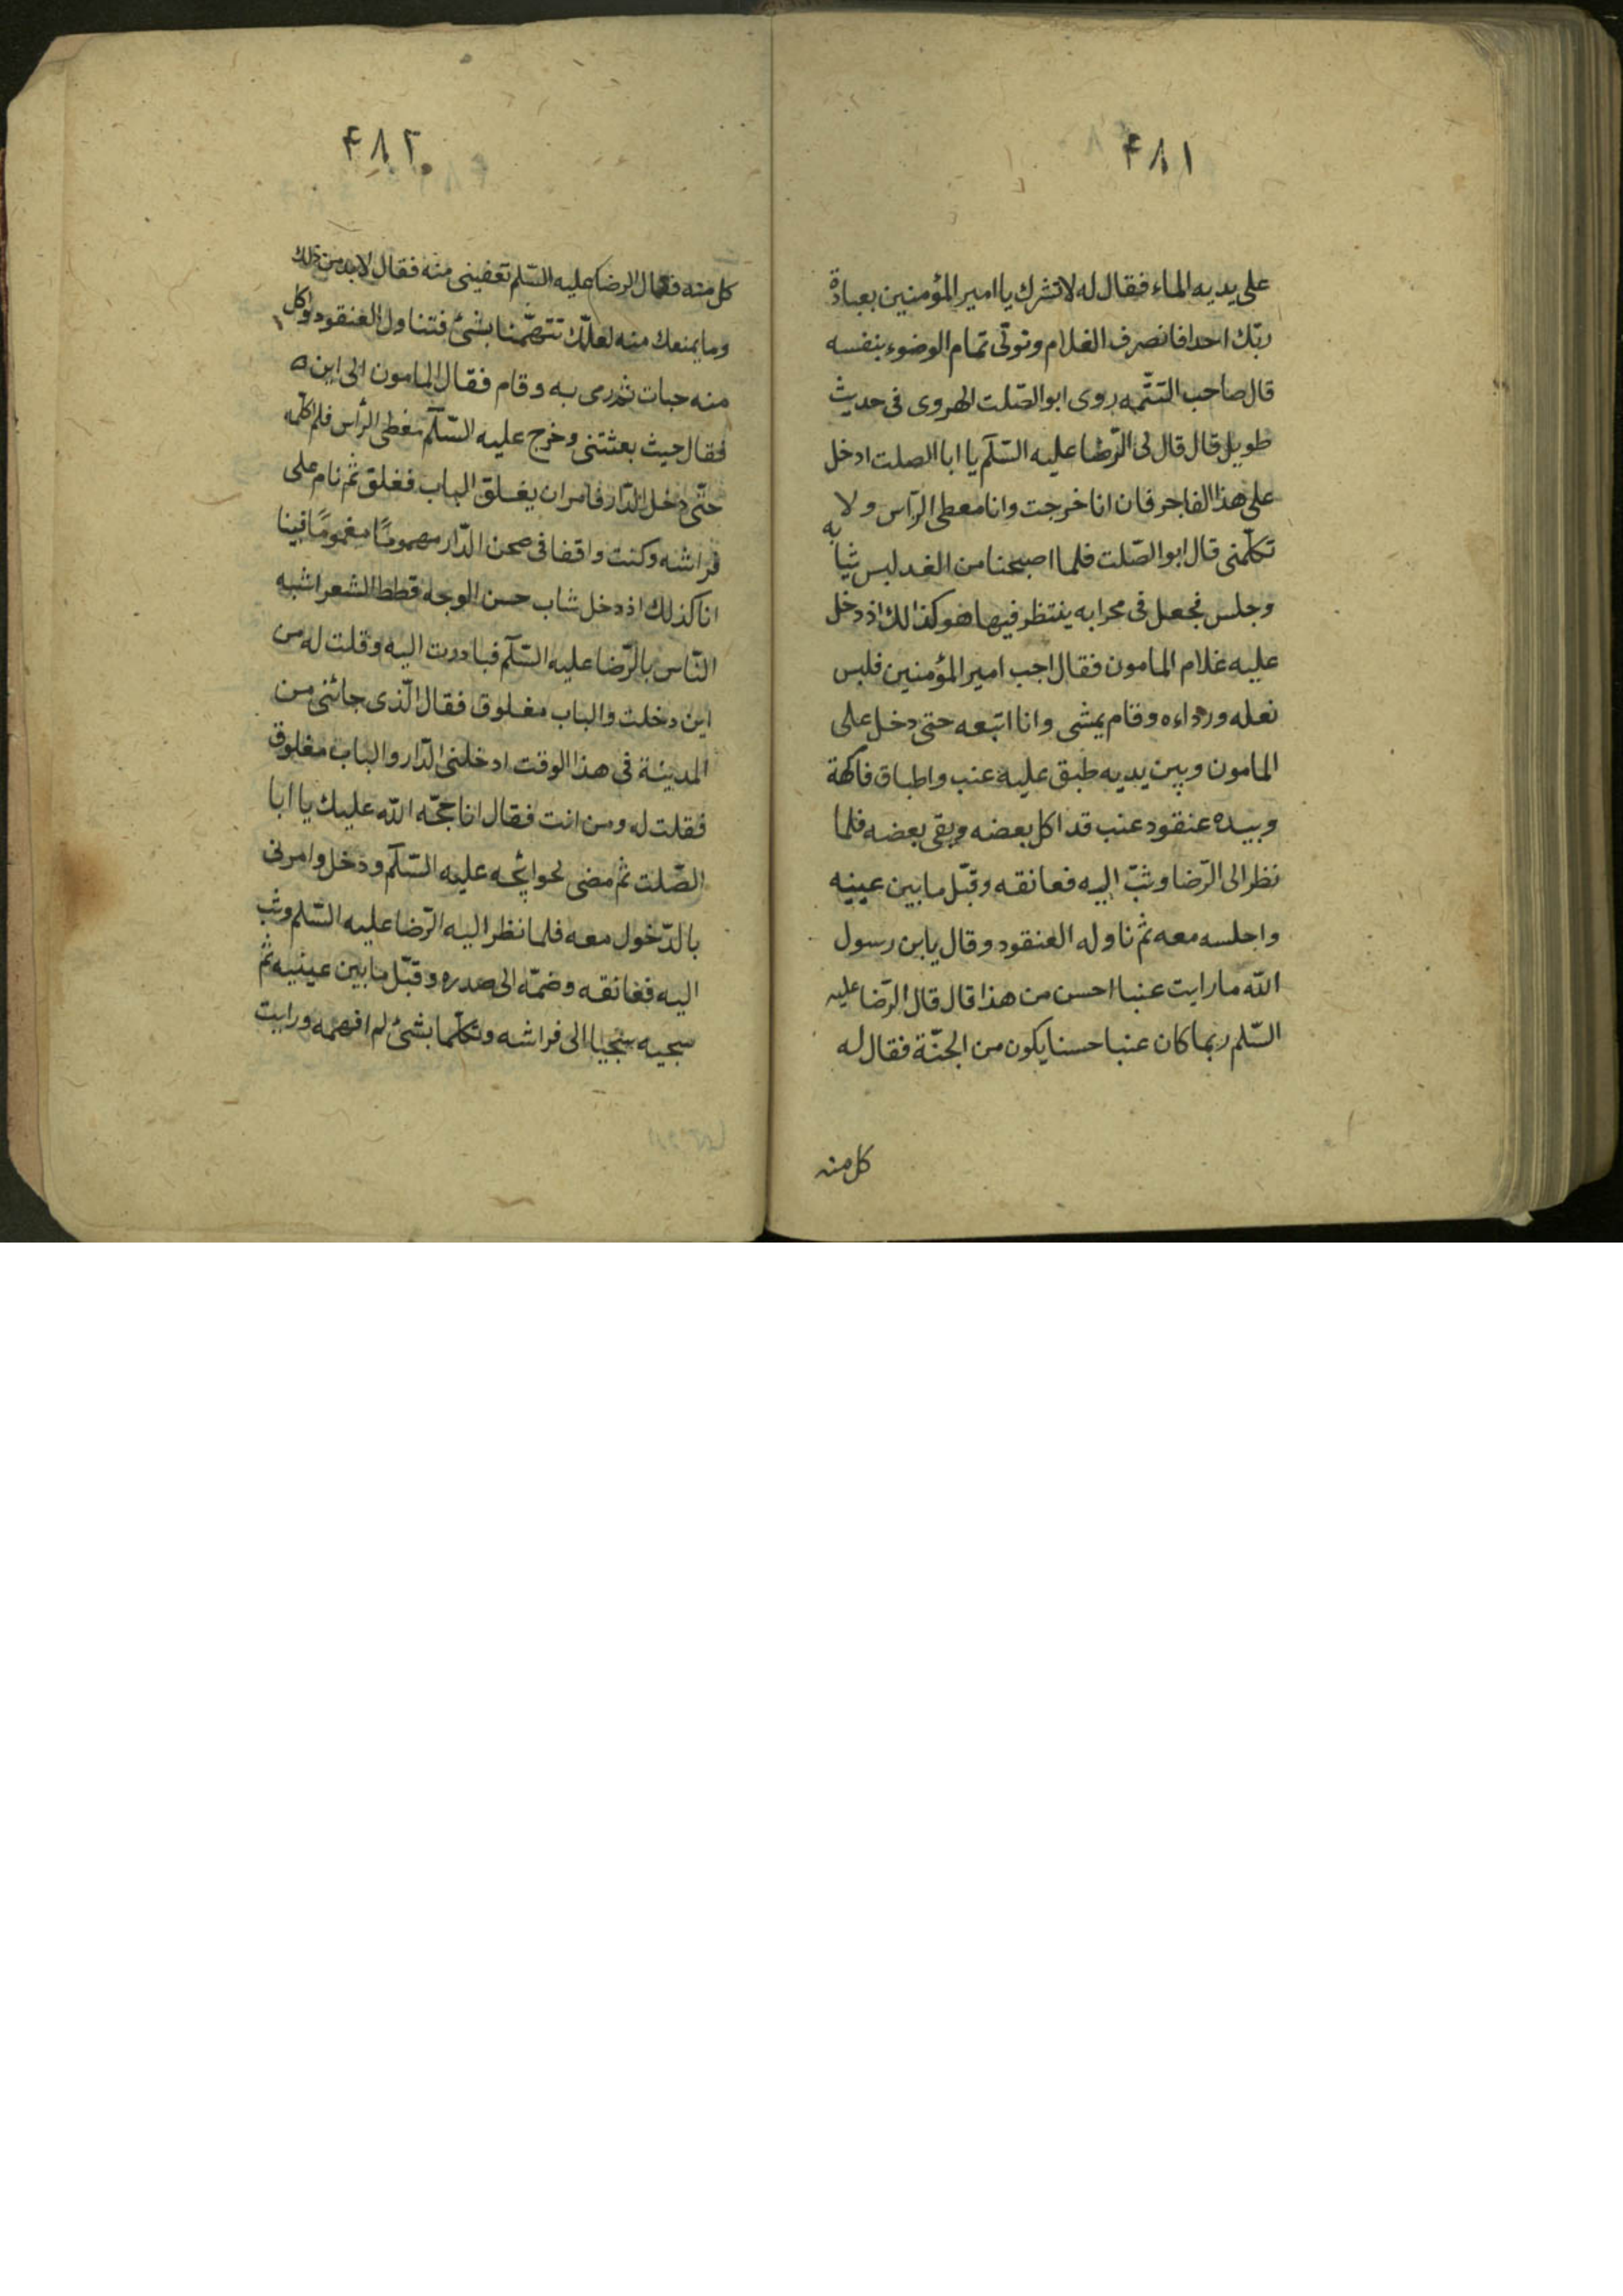 ۴۸۱
على يديه الماء فقال له لا تشرك يا امير المؤمنين بعبادة
ربّك احدا فانصرف الغلام وتولّى تمام الوضوء بنفسه
قال صاحب التتمّه روى ابو الصّلت الهروى فى حديث
طويل قال قال لى الرّضا عليه السّلام يا ابا الصلت ادخل
على هذا الفاجر فان انا خرجت وانا مغطى الرّاس ولا
تكلّمنى قال ابو الصّلت فلما اصبحنا من الغد لبس ثيابه
وجلس فجعل فى محرابه ينتظر فيها هو كذالك اذ دخل
عليه غلام المامون فقال اجب امير المؤمنين فلبس
نعله ورداءه وقام يمشى وانا اتبعه حتى دخل على
المامون وبين يديه طبق عليه عنب واطباق فاكهة
وبيده عنقود عنب قد اكل بعضه وبقى بعضه فلما
نظر الى الرّضا وثبّ اليه فعانقه وقبّل ما بين عينيه
واجلسه معه ثم ناوله العنقود وقال يابن رسول
الله ما رايت عنبا احسن من هذا قال قال الرّضا عليه
السّلم ربما كان عنبا حسنا يكون من الجنّة فقال له
كل منه
۴۸۲
كل منه فقال الرضا عليه السّلم تعفينى منه فقال لابد من ذلك
وما يمنعك منه لعلّك تتهمّنا بشئ فتناول العنقود واكل
منه حبات ثم رمى به وقام فقال المامون الى اين
فقال حيث بعثتنى وخرج عليه السّلم مغطى الرّأس فلم اكلّمه
حتّى دخل الدّار فامر ان يغلق الباب فغلق ثم نام على
فراشه وكنت واقفا فى صحن الدّار مهمومًا مغمومًا فبينا
انا كذلك اذ دخل شاب حسن الوجه قطط الشعر اشبه
النّاس بالرّضا عليه السّلم فبادرت اليه وقلت له من
اين دخلت والباب مغلوق فقال الّذى جائنى من
المدينة فى هذا الوقت ادخلنى الدّار والباب مغلوق
فقلت له ومن انت فقال انا حجّه الله عليك يا ابا
الصّلت ثم مضى لحوائجه عليه السّلم ودخل وامرنى
بالدّخول معه فلما نظر اليه الرّضا عليه السّلم وثب
اليه فعانقه وضمّه الى صدره وقبّل ما بين عينيه ثم
سحبه سحبا الى فراشه وتكلّما بشئ لم افهمه ورايت